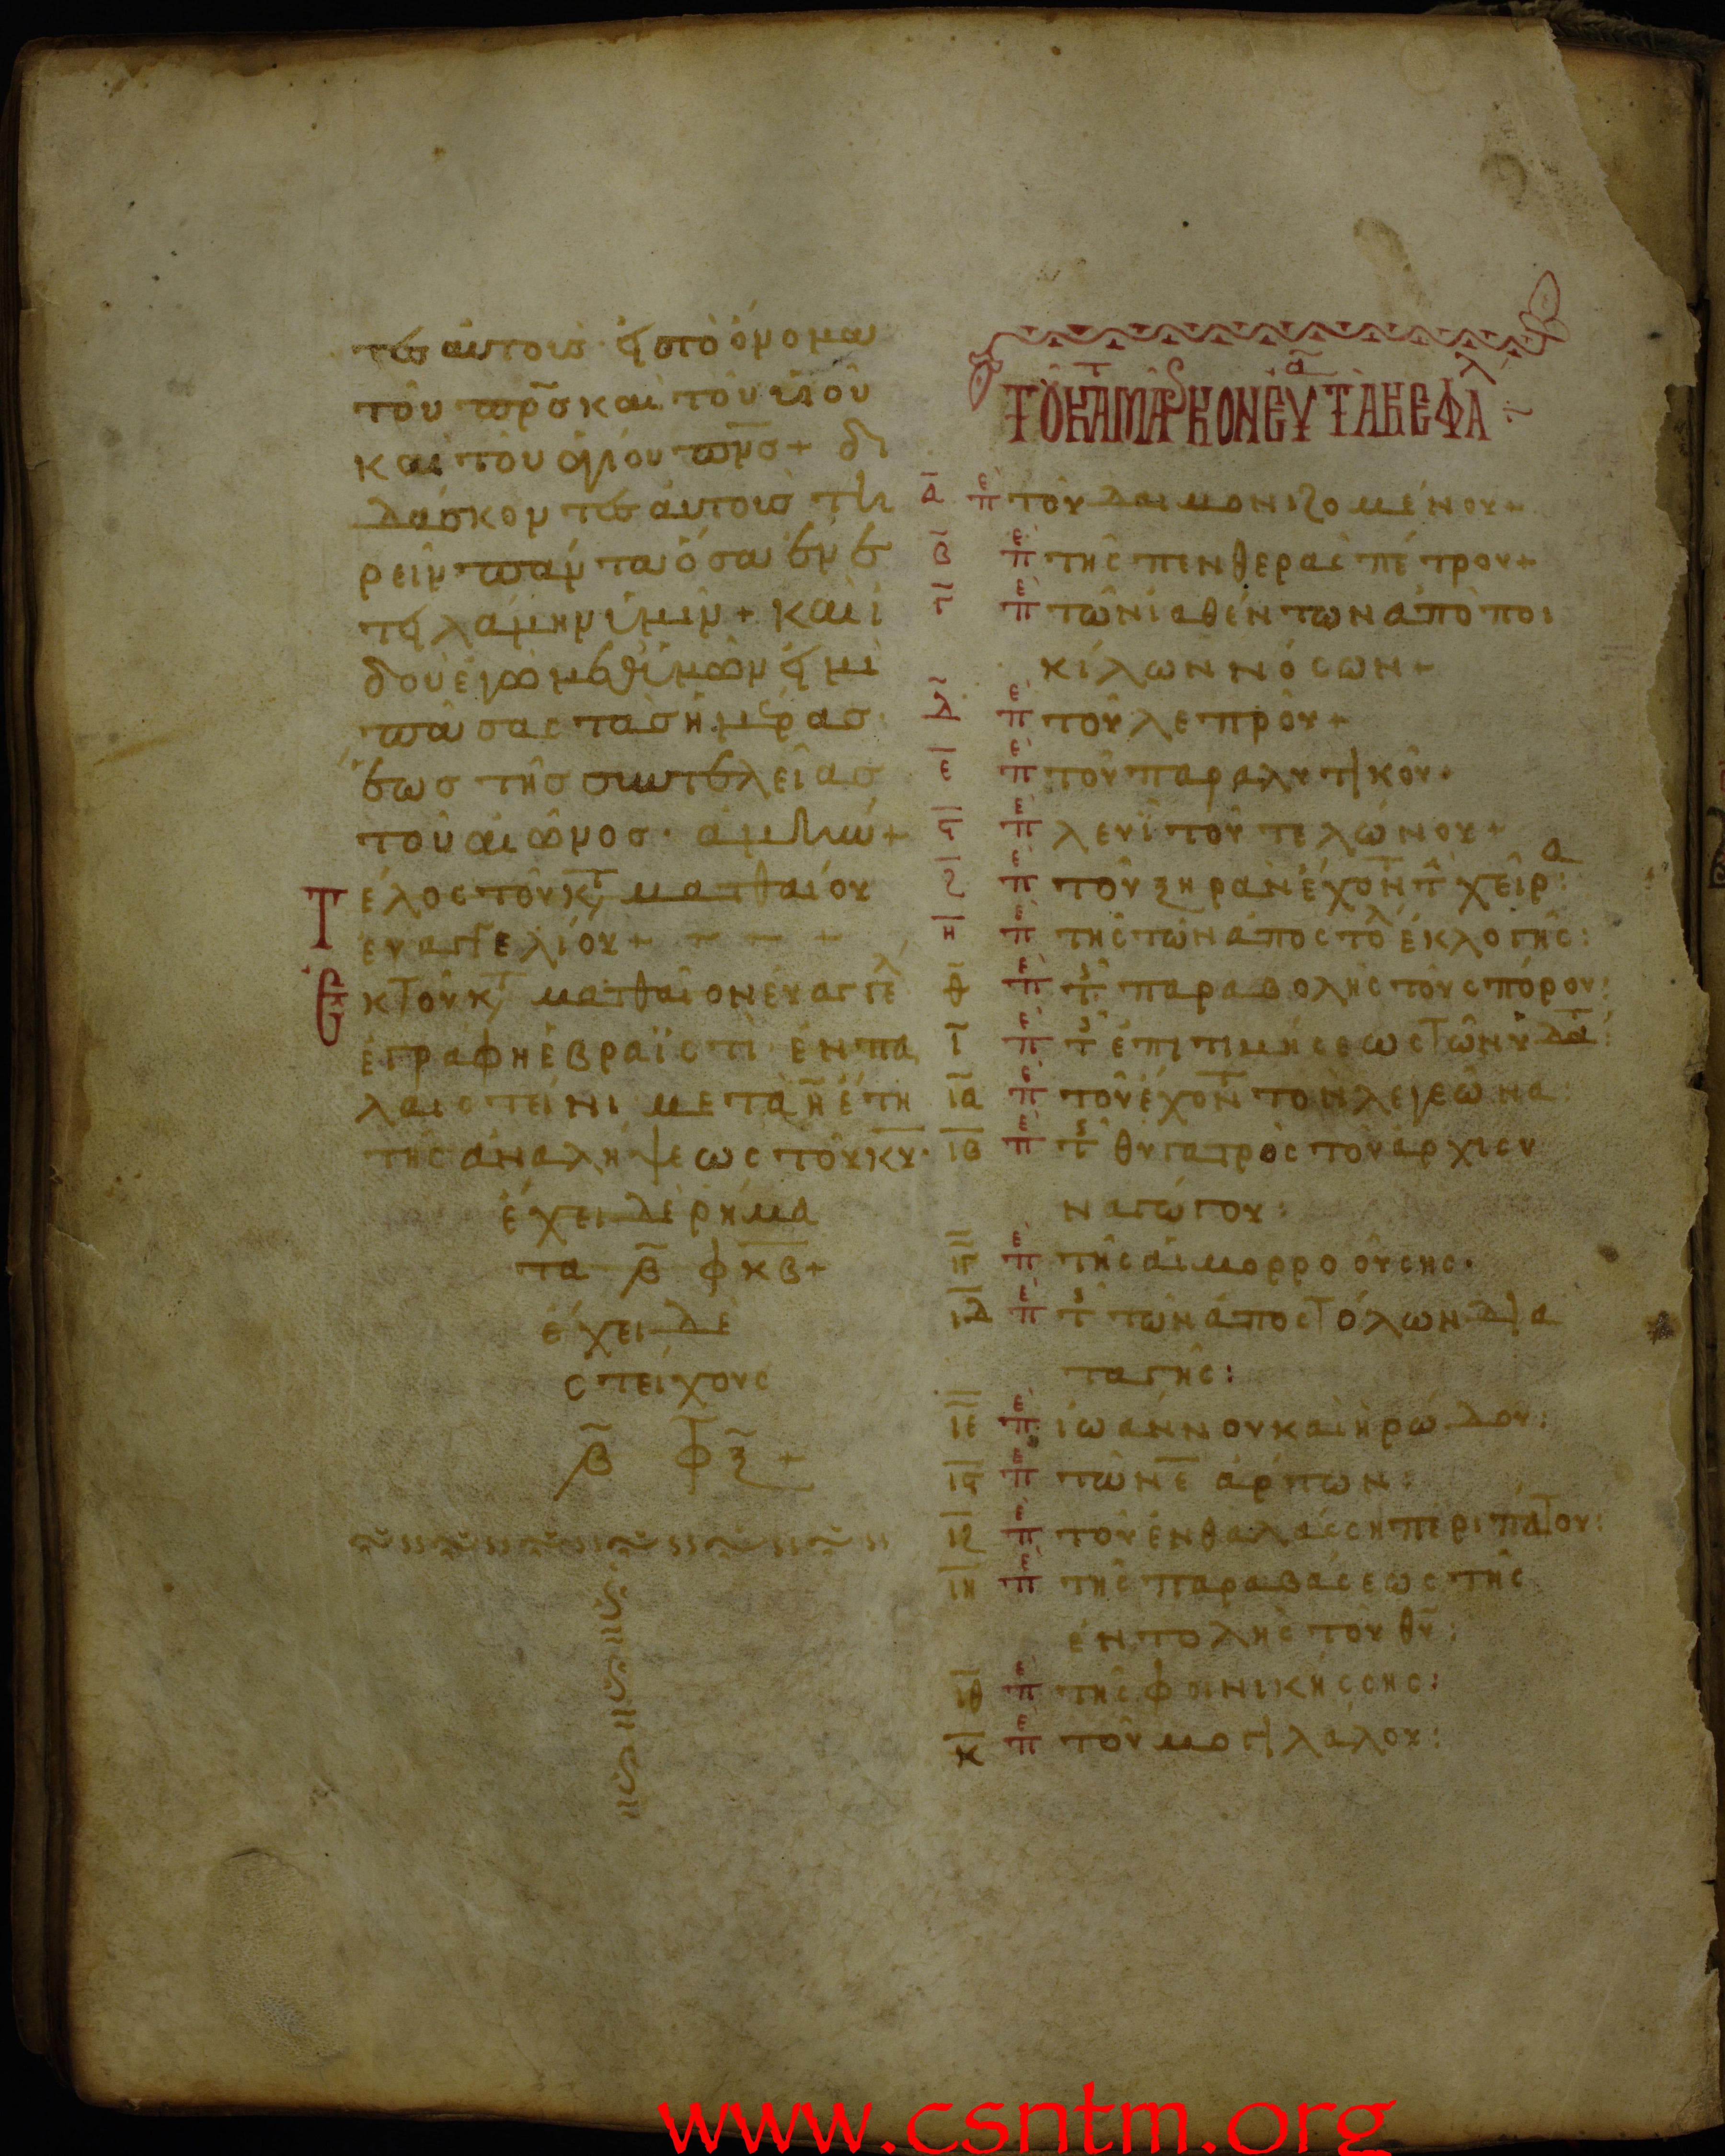 τες αυτοις εις το ονομα
του πρσ και του υιου
και του αγιου πνσ + δι
δασκοντες αυτους τη
ρειν παντα οσα ενε
τειλαμην υμιν + και ι
δου εγω μεθ υμων ειμι
πασας τας ημερας
εως της συντελειας
του αιωνος · αμην +
Τελος του κτ ματθαιου
ευαγγελιου +
Εκ του κτ ματθαιον ευαγγελ
εγραφη εβραϊστι εν πα
λαιστεινι μετα η ετη
της αναληψεως του κυ ·
εχει δε ρηματα
τα β φκβ +
εχει δε
στειχους
β φξ +
ΤΟ ΚΑΤ ΜΑΡΚΟΝ ΕΥΑ ΤΑ ΚΕΦΑΛ
α πε του δαιμονιζομενου +
β πε της πενθερας πετρου +
γ πε των ιαθεντων απο ποι
κιλων νοσων +
δ πε του λεπρου +
ε πε του παραλυτικου ·
ς πε λευϊ του τελωνου +
ζ πε του ξηραν εχοντ τ χειρα :
η πε της των αποστολ εκλογης :
θ πε τς παραβολης του σπορου :
ι πε τς επιτιμησεως των υδατ :
ια πε του εχοντ τον λεγεωνα :
ιβ πε τς θυγατρος του αρχισυ
ναγωγου :
ιγ πε της αιμορροουσης ·
ιδ πε τς των αποστολων δια
ταγης :
ιε πε ιωαννου και ηρωδου :
ις πε των ε αρτων :
ιζ πε του εν θαλασση περιπατου :
ιη πε της παραβασεως της
εντολης του θυ :
ιθ πε της φοινικησσης :
κ πε του μογιλαλου :
www.csntm.org